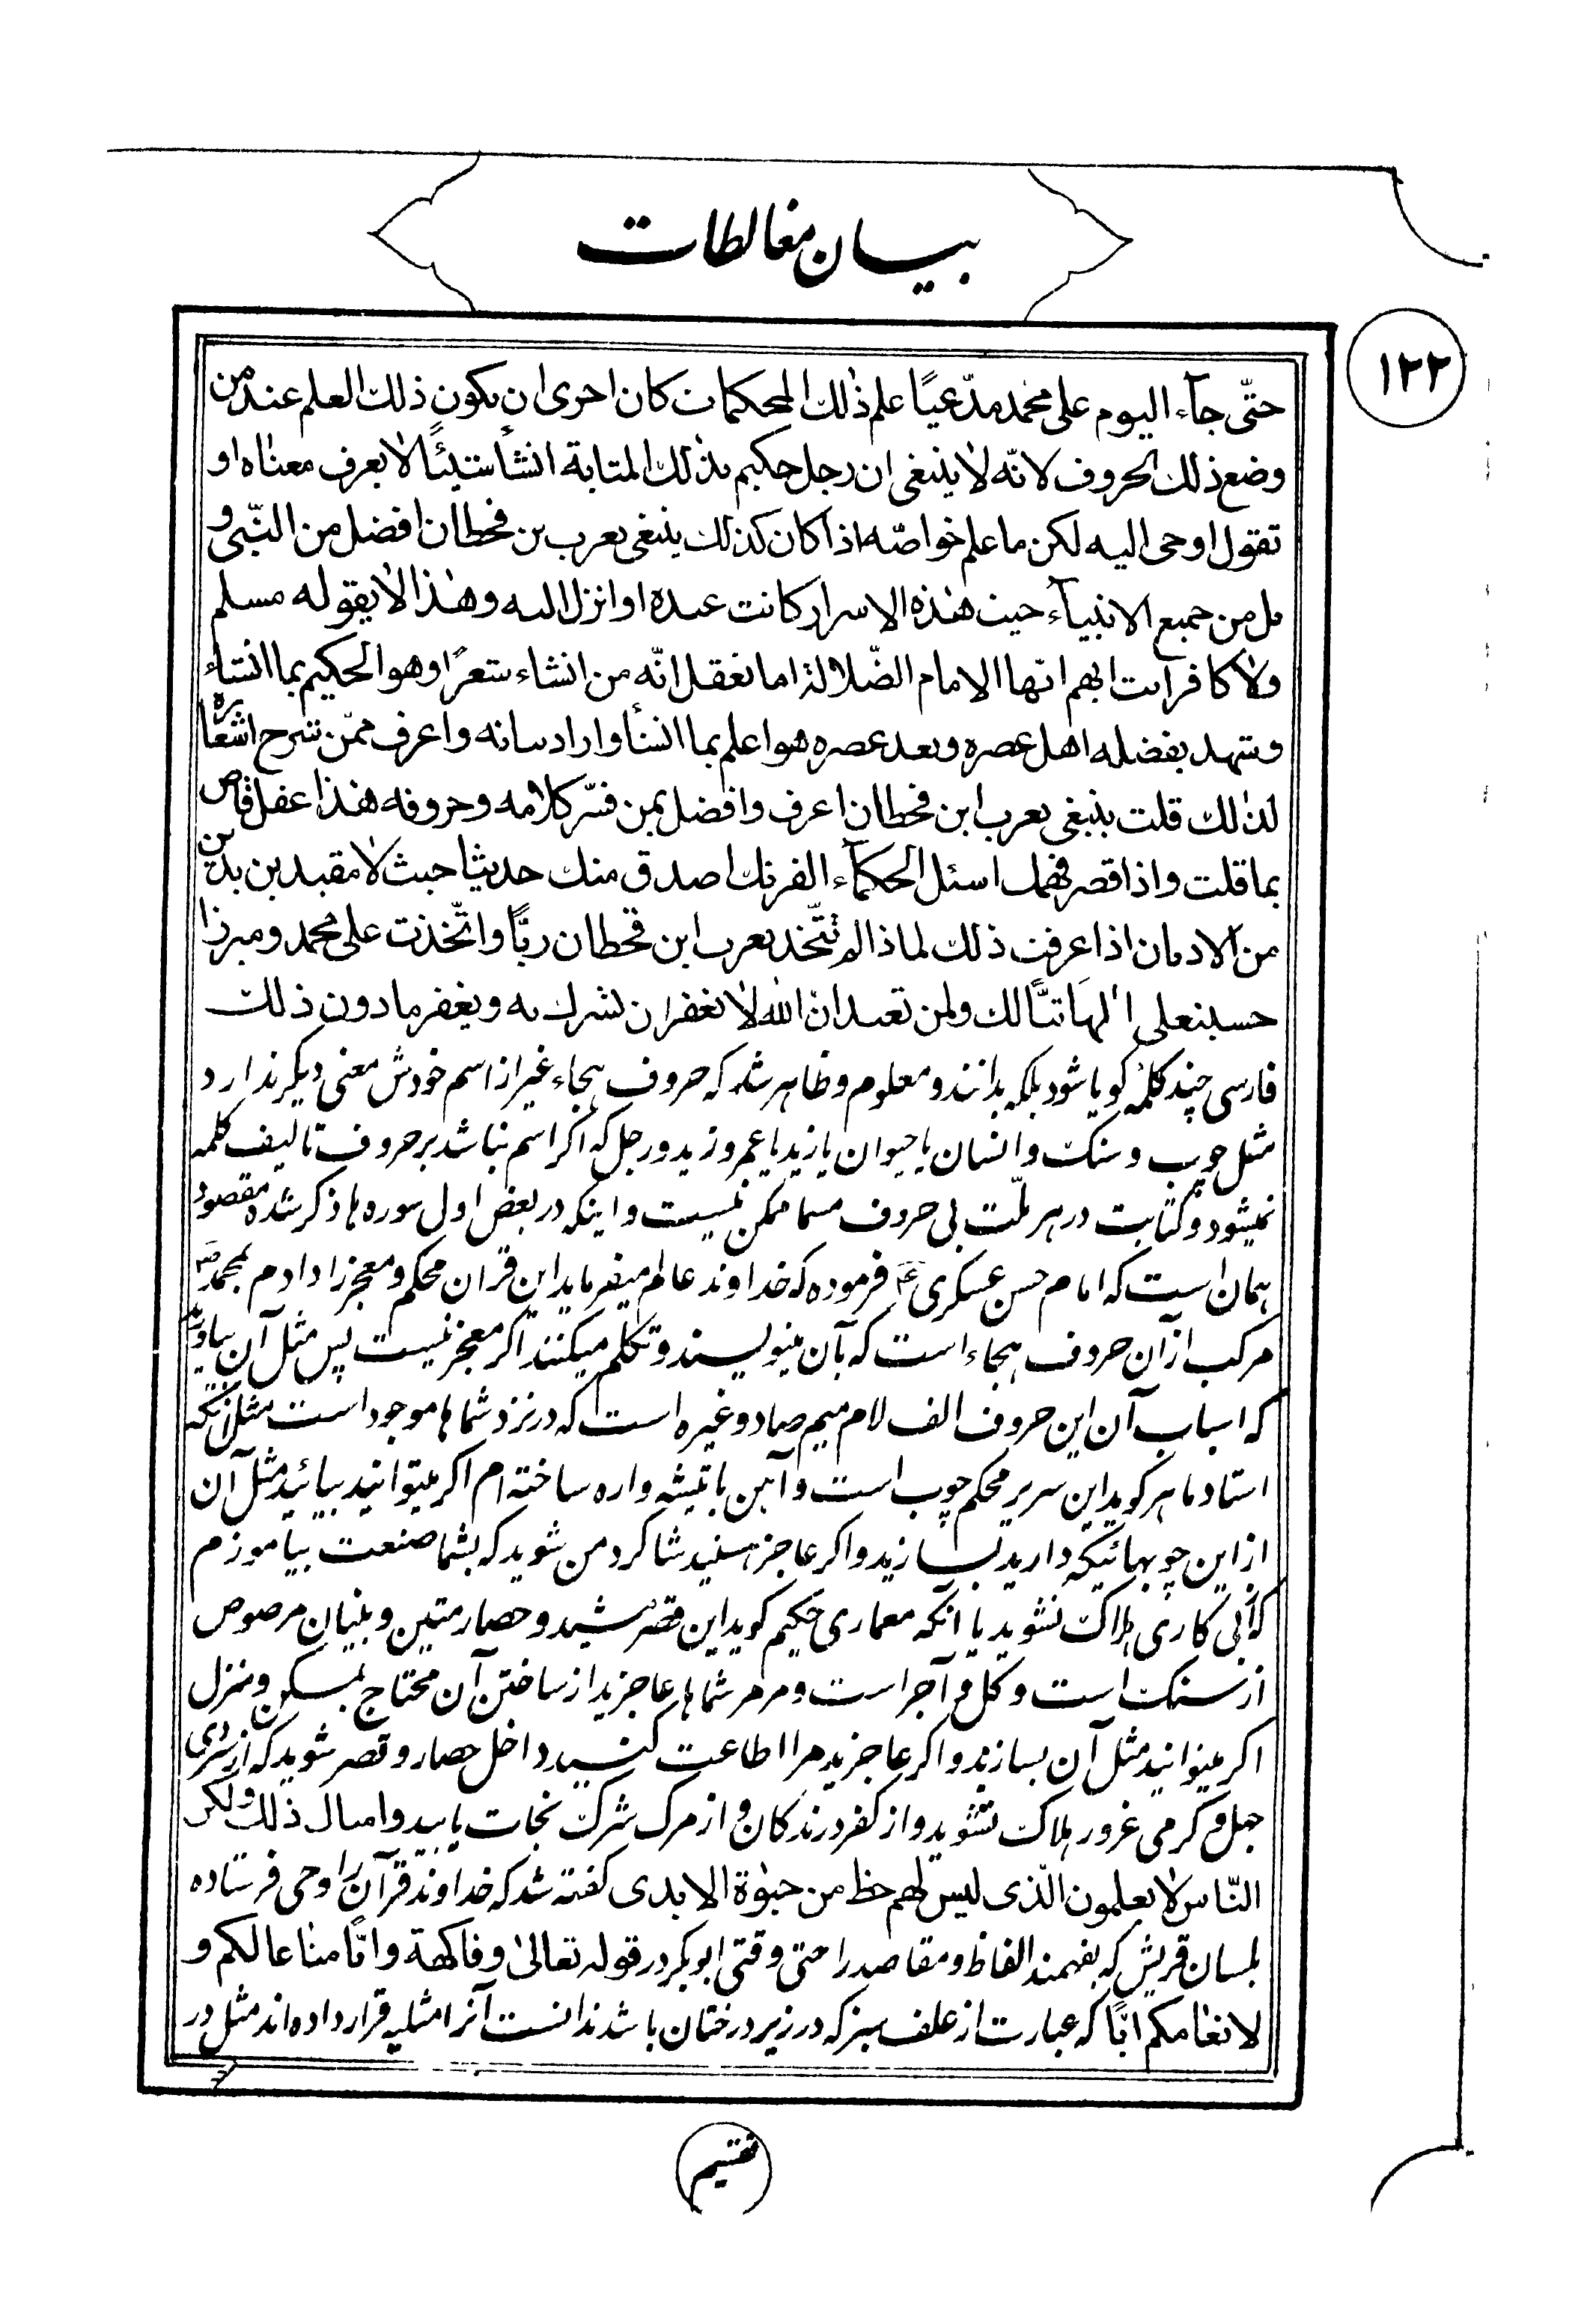 بیان مغالطات
۱۲۲
حتّی جآء الیوم علی محمد مدّعیًا علم ذلك المحکمات کان احری ان یکون ذلك العلم عند من
وضع ذلك الحروف لانّه لا ینبغی ان رجل حکیم بذلك المثابة انشأ شیئًا لا یعرف معناه او
تقول اوحی الیه لکن ما علم خواصّه اذا کان کذلك ینبغی یعرب بن قحطان افضل من النّبی و
بل من جمیع الانبیآء حیث هذه الاسرار کانت عنده او انزل الیه و هذا لا یقوله مسلم
ولا کافر انت ایهم ایّها الامام الضّلالة اما تعقل انّه من انشاء شعرًا و هو الحکیم بما انشاء
وشهد بفضله اهل عصره وبعد عصره هو اعلم بما انشأ واراد بیانه واعرف ممّن شرح اشعاره
لذلك قلت ینبغی یعرب ابن قحطان اعرف وافضل بمن فسّر کلامه وحروفه هذا عقل قاص
بما قلت و اذا قصر فهمك اسئل الحکمآء الفرنك اصدق منك حدیثا حیث لا مقید بن بدین
من الادیان اذا عرفت ذلك لماذا لم تتّخذ یعرب ابن قحطان ربًّا واتّخذت علی محمد و میرزا
حسینعلی الهًا تبًّا لك ولمن تعبد انّ الله لا یغفر ان یشرك به ویغفر ما دون ذلك
فارسی چند کلمهٔ کویا شود بلکه بدانند و معلوم و ظاهر شد که حروف هجاء غیر از اسم خودش معنی دیکر ندارد
مثل چوب و سنك و انسان یا حیوان یا زید یا عمرو زید و رجل که اکر اسم نباشد بر حروف تالیف کلمه
نمیشود و کتابت در هر ملّت بی حروف مسما ممکن نیست و اینکه در بعض اول سوره ها ذکر شده مقصود
همان است که امام حسن عسکری ع فرموده که خداوند عالم میفرماید این قران محکم و معجز را دادم بمحمد ص
مرکب از آن حروف هجاء است که بآن مینویسند و تکلم میکنند اکر معجز نیست پس مثل آن بیاورید
که اسباب آن این حروف الف لام میم صاد و غیره است که در نزد شماها موجود است مثل آنکه
استاد ماهر کوید این سریر محکم چوب است و آهن با تیشه و اره ساخته ام اکر میتوانید بیائید مثل آن
از این چوبهائیکه دارید بسازید و اکر عاجز هستید شاکرد من شوید که بشما صنعت بیاموزم
که از بی کاری هلاک نشوید یا آنکه معماری حکیم کوید این قصر مشید و حصار متین و بنیان مرصوص
از سنک است و کل و آجر است و مرمر شماها عاجزید از ساختن آن محتاج بمسکن و منزل
اکر میتوانید مثل آن بسازید و اکر عاجزید مرا اطاعت کنید داخل حصار و قصر شوید که از سردی
جهل و کرمی غرور هلاک نشوید و از کفر درندکان و از مرک شرک نجات یابید و امثال ذلك ولکن
النّاس لا یعلمون الّذی لیس لهم حظ من حیوٰة الابدی کفته شد که خداوند قرآن را وحی فرستاده
بلسان قریش که بفهمند الفاظ و مقاصد را حتی وقتی ابوبکر در قوله تعالی وفاکهة وابًّا متاعا لکم و
لانعامکم ابًّا که عبارت از علف سبز که در زیر درختان باشد ندانست آنرا مثلبه قرار داده اند مثل در
تقسیم